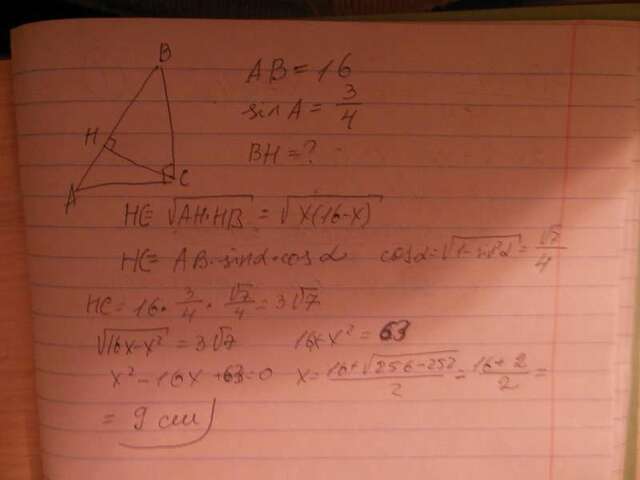 B
AB = 16
sin A = 3/4
H
BH = ?
A
C
HC = √AH·HB = √x(16-x)
HC = AB·sinα·cosα cosα = √1-sin²α = √7/4
HC = 16·3/4·√7/4 = 3√7
√16x-x² = 3√7 16x-x² = 63
x²-16x+63=0 x = 16+√256-252/2 = 16+2/2 =
= 9 см